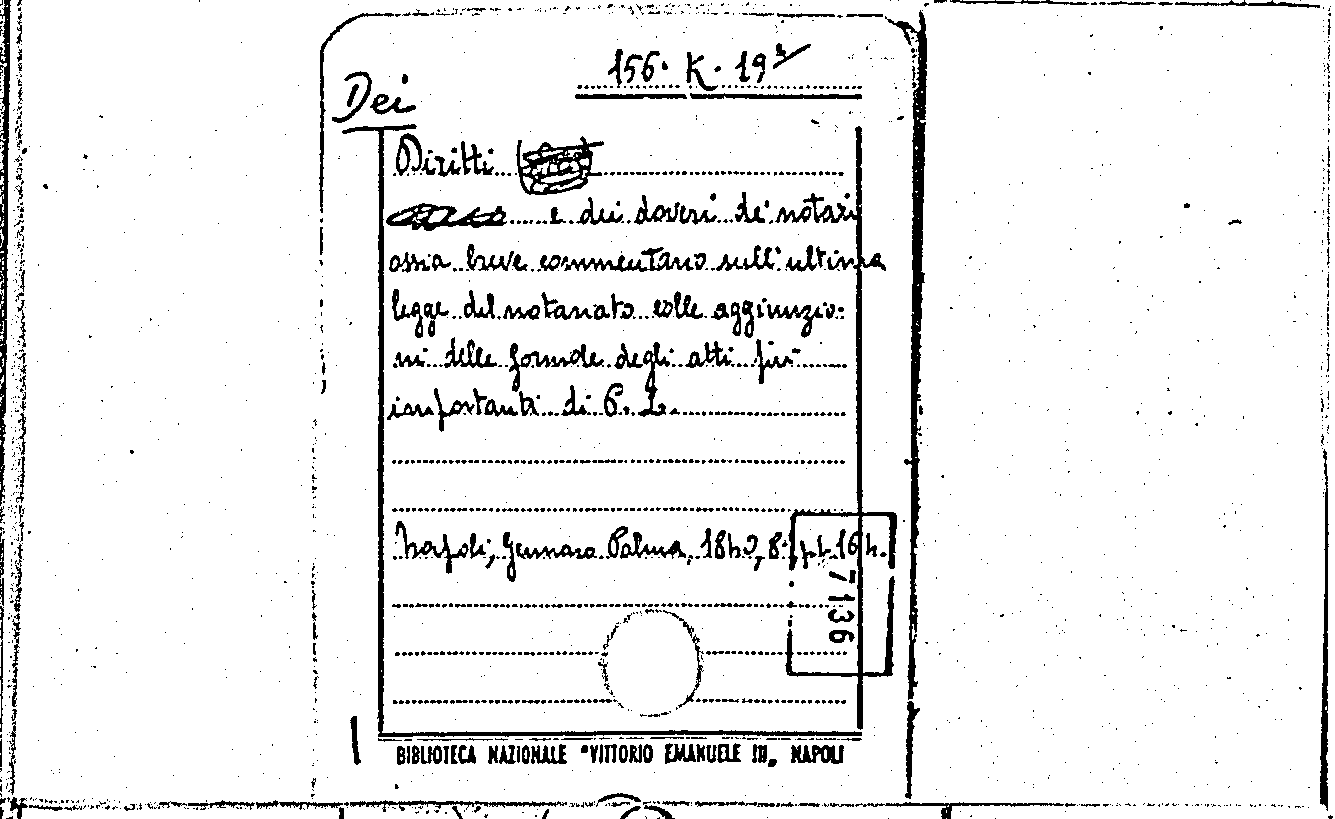 156. K. 19
Dei
Diritti
e dei doveri de' notari
ossia breve commentario sull'ultima
legge del notariato colle aggiunzio:
ni delle formole degli atti più
importanti di P. L.
Napoli, Gennaro Palma, 1840, 8°, pp. 164.
7136
BIBLIOTECA NAZIONALE "VITTORIO EMANUELE III" NAPOLI